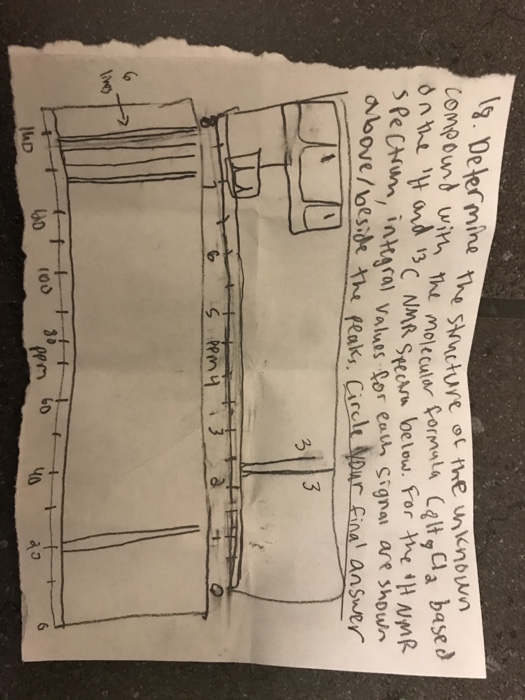 1g. Determine the structure of the unknown
compound with the molecular formula C8H8Cl2 based
on the 1H and 13 C NMR Spectra below. For the 1H NMR
spectrum, integral values for each signal are shown
above/beside the peaks. Circle your final answer
3 3
8 7 6 5 ppm 4 3 2 1 0
6
lines
140 100 80 ppm 60 40 20 0